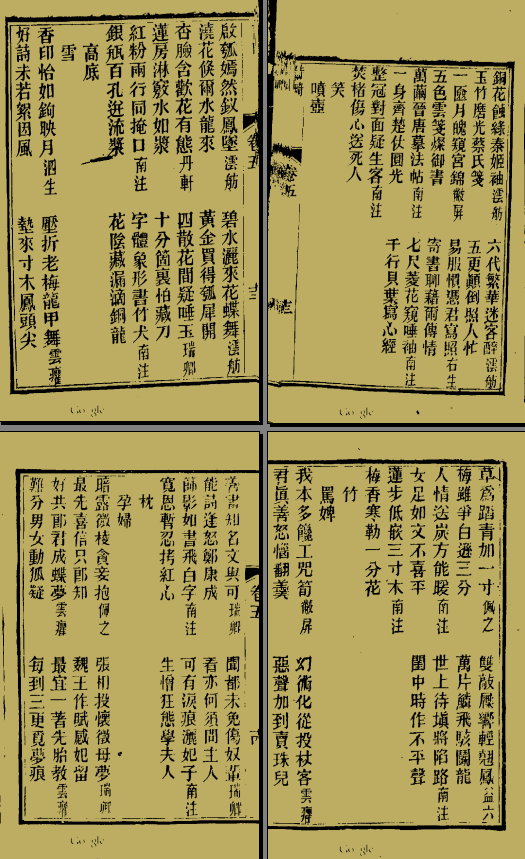 銅花蝕綠秦姬袖澐舫 六代繁華迷客醉澐舫
玉竹磨光蔡氏箋 五更顛倒照人忙
一匳月魄窺宮錦敝屏 易服慣憑君寫照右生
五色雲箋燦御書 寄書聊藉爾傳情
萬繭晉唐摹法帖南注 七尺菱花窺唾袖南注
一身齊楚仗圓光 千行貝葉寫心經
整冠對面疑生客南注
焚楮傷心送死人
笑
噴壺
卷五
啟瓠嫣然釵鳳墜澐舫 碧水灑來花蝶舞澐舫
澆花倏爾水龍來 黃金買得瓠犀開
杏臉含歡花有態丹軒 四散花間疑唾玉瑞卿
蓮房淋竅水如漿 十分箇裏怕藏刀
紅粉兩行同掩口南注 字體象形書竹犬南注
銀瓶百孔迸流漿 花陰藏漏滴銅龍
高底
雪
香印恰如鉤映月泗生 壓折老梅龍甲舞雲癯
好詩未若絮因風 墊來寸木鳳頭尖
卷五
草為踏青加一寸佩之 雙敲屧響輕翹鳳益六
梅雖爭白遜三分 萬片鱗飛駭鬭龍
人情送炭方能暖南注 世上待塡將陷路南注
女足如文不喜平 閨中時作不平聲
蓮步低嵌三寸木南注
梅香寒勒一分花
竹
罵婢
我本多饞工咒筍敝屏 幻術化從投杖客雲癯
君眞善怒惱翻羹 惡聲加到賣珠兒
善畫知名文與可瑞卿 聞都未免傷奴輩瑞卿
能詩逢怒鄭康成 看亦何須問主人
篩影如書飛白字南注 可有淚痕灑妃子南注
寬恩暫忍拷紅心 生憎狂態學夫人
枕
孕婦
暗露微稜貪妾抱佩之 張相投懷徵母夢瑞卿
最先喜信只郞知 魏王作賦感妃留
好共郞君成蝶夢雲癯 最宜一著先胎教雲癯
難分男女動狐疑 每到三更覓夢痕
卷五
Google
Google
Google
Google